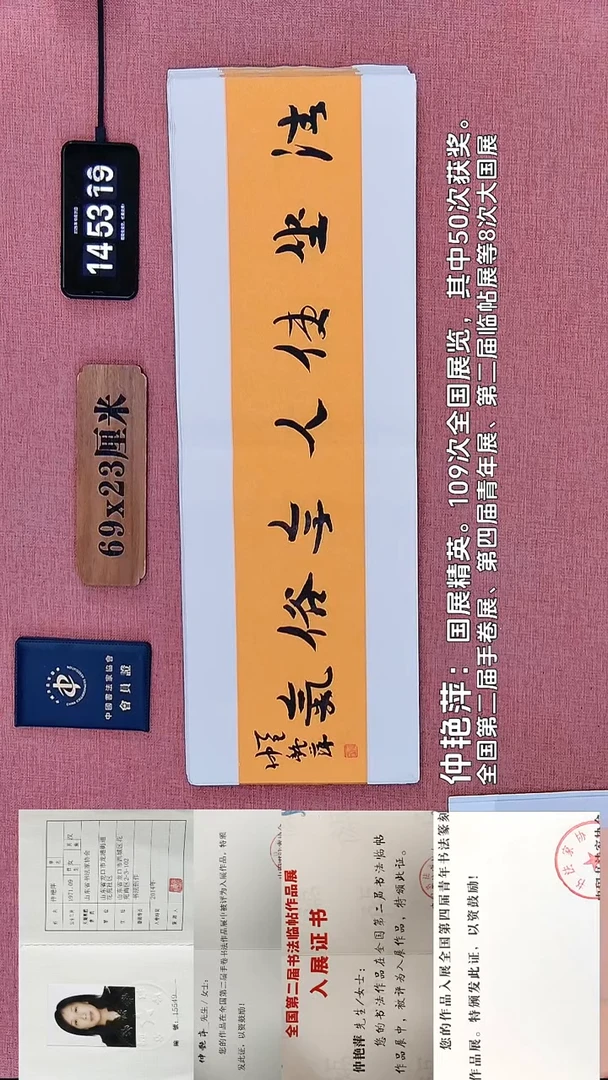 中國書法家協會
會員證
69x23厘米
14 53 19
清坐使人無俗氣
仲艳萍
仲艳萍：国展精英。109次全国展览，其中50次获奖。
全国第二届手卷展、第四届青年展、第二届临帖展等8次大国展
仲艳萍
女
汉
1971.09
山东省书法家协会
2014年
編 號
仲艳萍 先生/女士：
您的作品在全国第二届手卷书法作品展中被评为入展作品，特颁
发此证，以资鼓励！
全国第二届书法临帖作品展
入展证书
仲艳萍 先生/女士：
您的书法作品在全国第二届书法临帖
作品展中，被评为入展作品，特颁此证。
您的作品入展全国第四届青年书法篆刻
作品展。特颁发此证，以资鼓励！